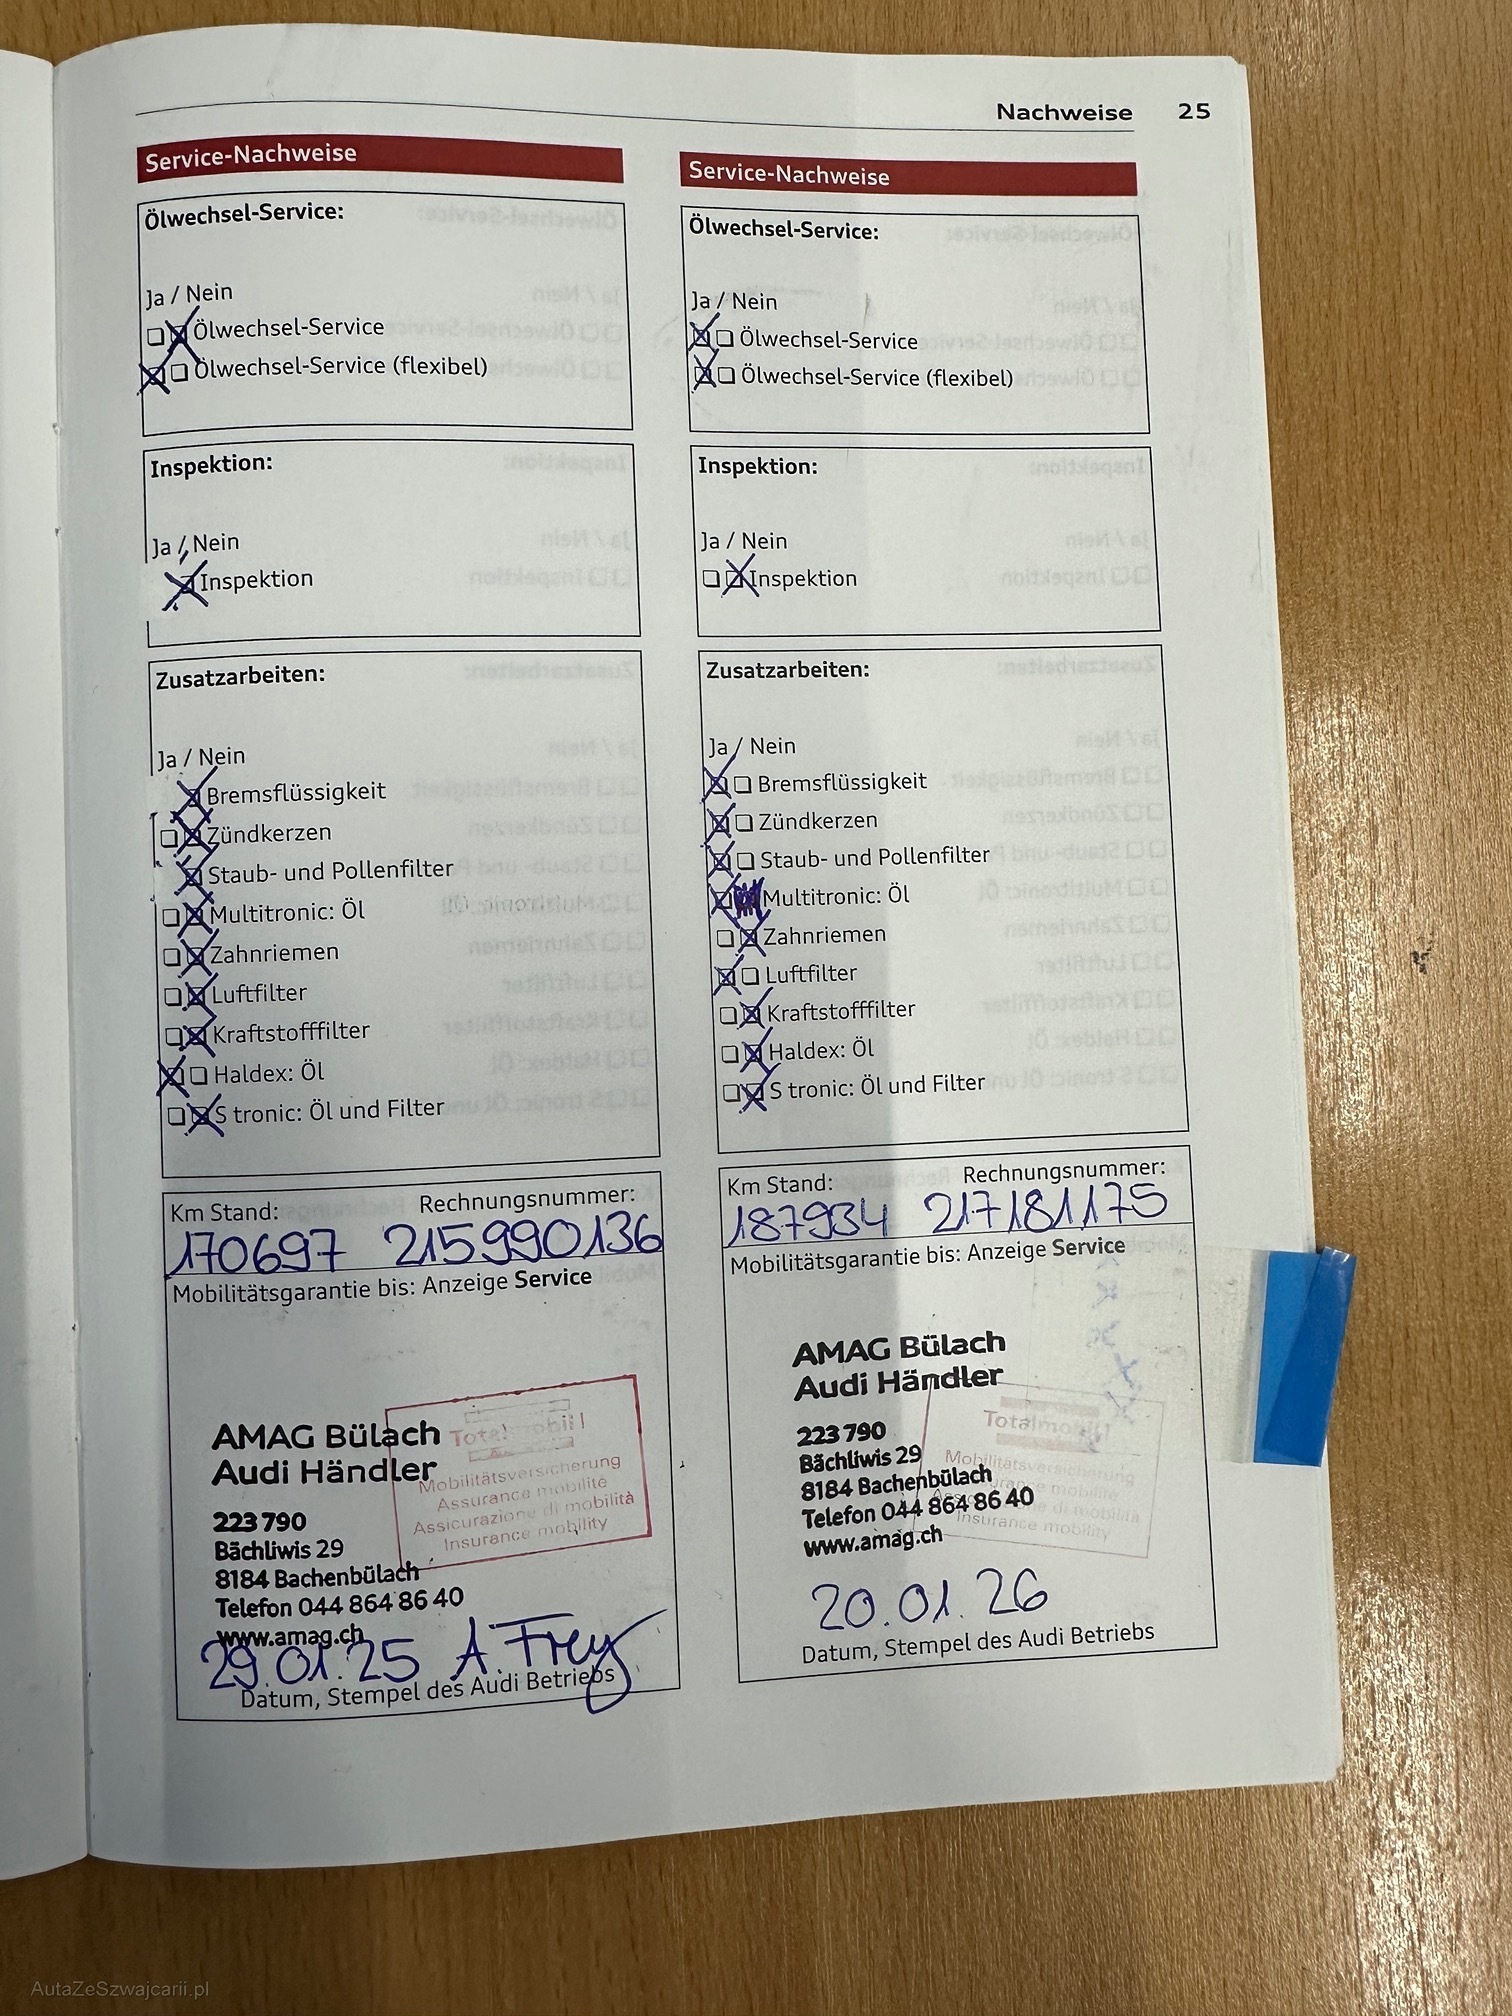 Nachweise 25
Service-Nachweise
Ölwechsel-Service:
Ja / Nein
Ölwechsel-Service
Ölwechsel-Service (flexibel)
Inspektion:
Ja / Nein
Inspektion
Zusatzarbeiten:
Ja / Nein
Bremsflüssigkeit
Zündkerzen
Staub- und Pollenfilter
Multitronic: Öl
Zahnriemen
Luftfilter
Kraftstofffilter
Haldex: Öl
S tronic: Öl und Filter
Km Stand: Rechnungsnummer:
170697 215990136
Mobilitätsgarantie bis: Anzeige Service
AMAG Bülach
Audi Händler
223 790
Bächliwis 29
8184 Bachenbülach
Telefon 044 864 86 40
www.amag.ch
Totalmobil!
Mobilitätsversicherung
Assurance mobilité
Assicurazione di mobilità
Insurance mobility
29.01.25 A. Frey
Datum, Stempel des Audi Betriebs
Service-Nachweise
Ölwechsel-Service:
Ja / Nein
Ölwechsel-Service
Ölwechsel-Service (flexibel)
Inspektion:
Ja / Nein
Inspektion
Zusatzarbeiten:
Ja / Nein
Bremsflüssigkeit
Zündkerzen
Staub- und Pollenfilter
Multitronic: Öl
Zahnriemen
Luftfilter
Kraftstofffilter
Haldex: Öl
S tronic: Öl und Filter
Km Stand: Rechnungsnummer:
187934 217181175
Mobilitätsgarantie bis: Anzeige Service
AMAG Bülach
Audi Händler
223 790
Bächliwis 29
8184 Bachenbülach
Telefon 044 864 86 40
www.amag.ch
Totalmobil!
Mobilitätsversicherung
Assurance mobilité
Assicurazione di mobilità
Insurance mobility
20.01.26
Datum, Stempel des Audi Betriebs
AutaZeSzwajcarii.pl